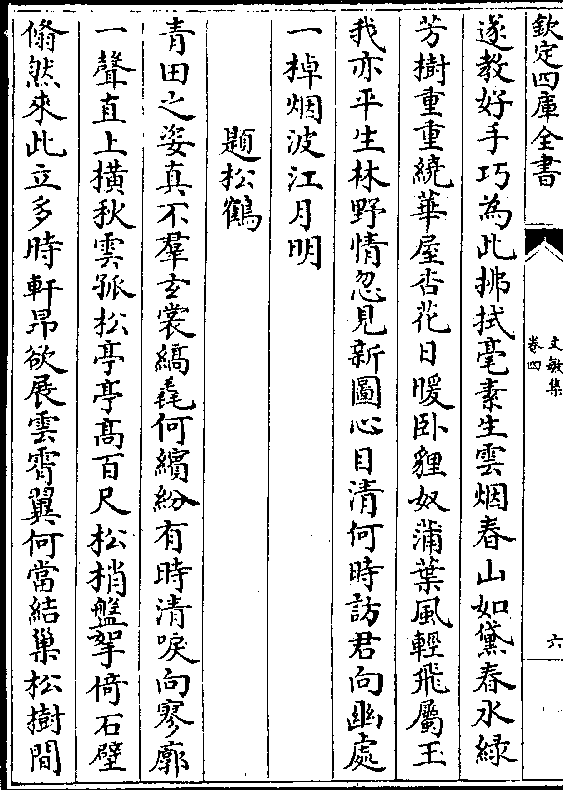 欽定四庫全書
文敏集
卷四
六
遂教好手巧為此拂拭毫素生雲烟春山如黛春水綠
芳樹重重繞華屋杏花日暖卧貍奴蒲葉風輕飛屬玉
我亦平生林野情忽見新圖心目清何時訪君向幽處
一棹烟波江月明
題松鶴
青田之姿真不羣玄裳縞毳何繽紛有時清唳向寥廓
一聲直上横秋雲孤松亭亭高百尺松梢盤拏倚石壁
翛然來此立多時軒昂欲展雲霄翼何當結巢松樹間